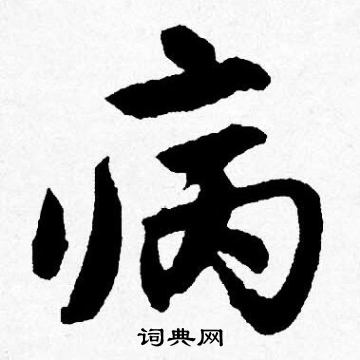 病
词典网